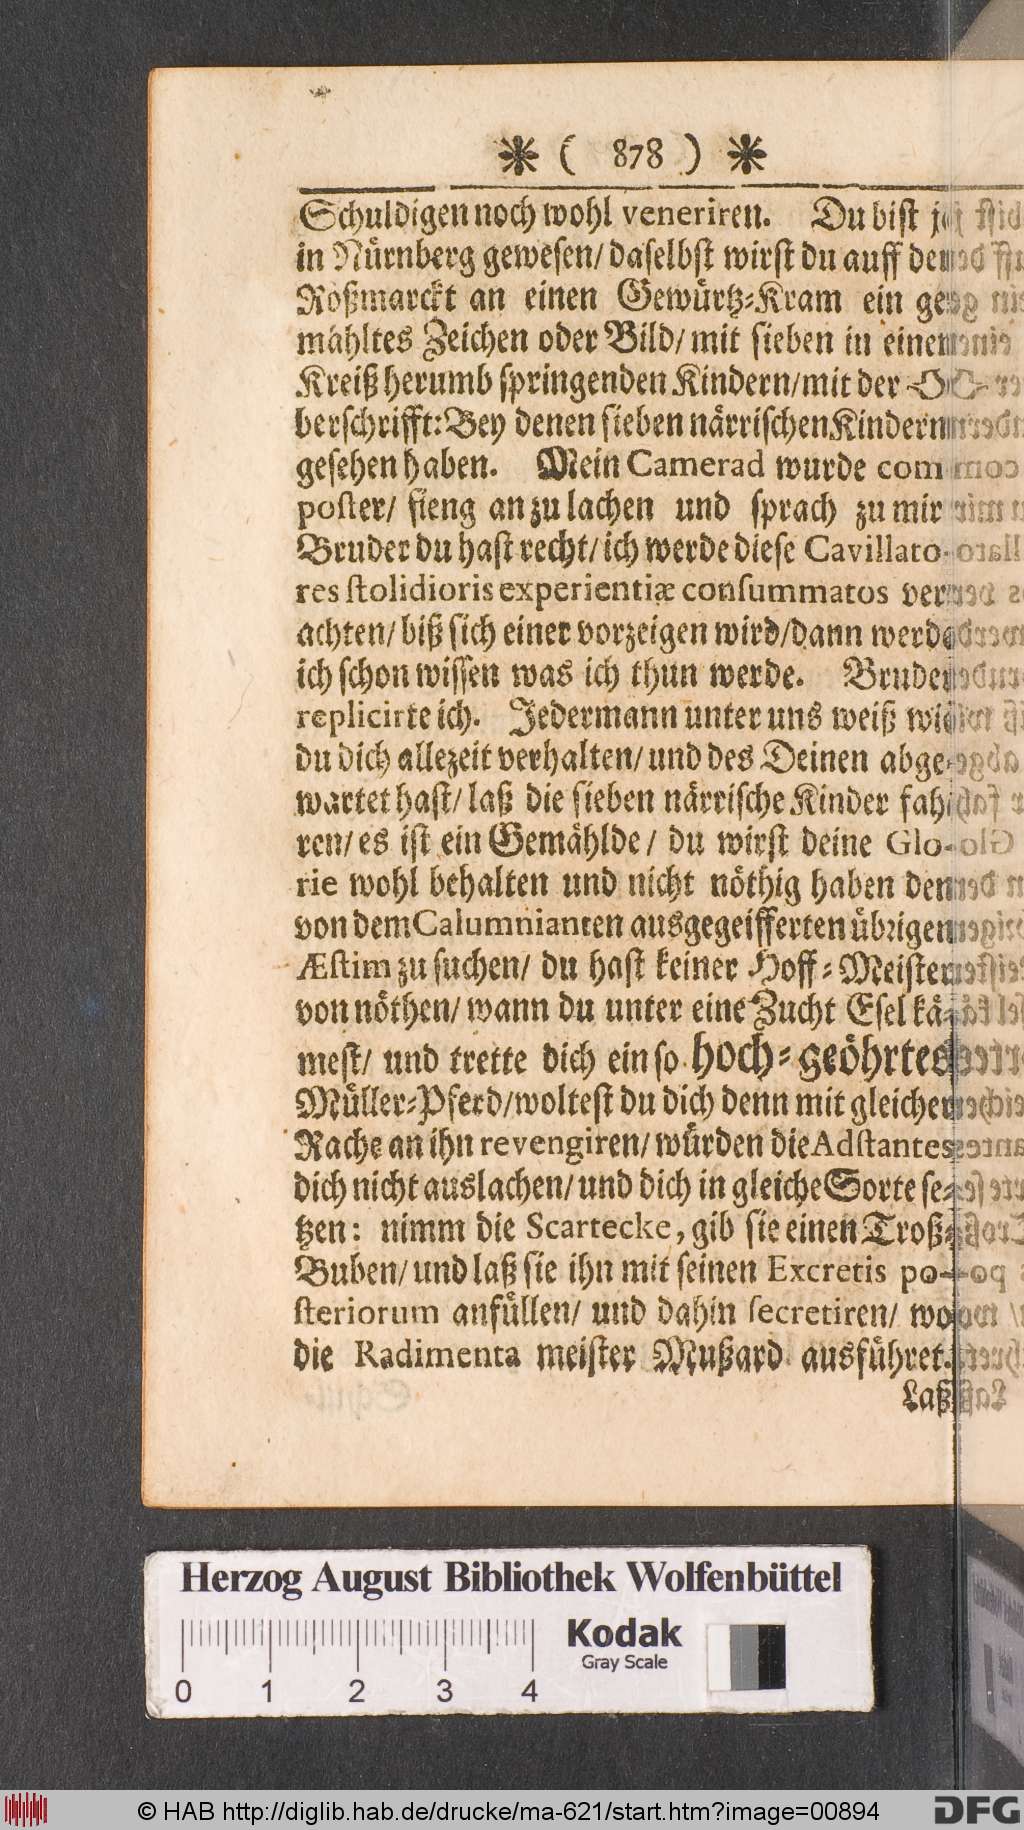 * ( 878 ) *
Schuldigen noch wohl veneriren. Du bist ja
in Nürnberg gewesen/ daselbst wirst du auff den
Roßmarckt an einen Gewürtz-Kram ein ge-
mahltes Zeichen oder Bild/ mit sieben in einen
Kreiß herumb springenden Kindern/ mit der O-
berschrifft: Bey denen sieben närrischen Kindern
gesehen haben. Mein Camerad wurde com-
poster/ fieng an zu lachen und sprach zu mir
Bruder du hast recht/ ich werde diese Cavillato-
res stolidioris experientiæ consummatos ver-
achten/ biß sich einer vorzeigen wird/ dann werde
ich schon wissen was ich thun werde. Bruder
replicirte ich. Jedermann unter uns weiß wie
du dich allezeit verhalten/ und des Deinen abge-
wartet hast/ laß die sieben närrische Kinder fah-
ren/ es ist ein Gemählde/ du wirst deine Glo-
rie wohl behalten und nicht nöthig haben den
von dem Calumnianten ausgegeifferten übrigen
Æstim zu suchen/ du hast keiner Hoff-Meister
von nöthen/ wann du unter eine Zucht Esel kä-
mest/ und trette dich ein so hoch-geöhrtes
Müller-Pferd/ woltest du dich denn mit gleicher
Rache an ihn revengiren/ würden die Adstantes
dich nicht auslachen/ und dich in gleiche Sorte se-
tzen: nimm die Scartecke, gib sie einen Troß-
Buben/ und laß sie ihn mit seinen Excretis po-
steriorum anfüllen/ und dahin secretiren/ wo
die Radimenta meister Mußard ausführet.
Laß
Herzog August Bibliothek Wolfenbüttel
Kodak
Gray Scale
0 1 2 3 4
© HAB http://diglib.hab.de/drucke/ma-621/start.htm?image=00894
DFG